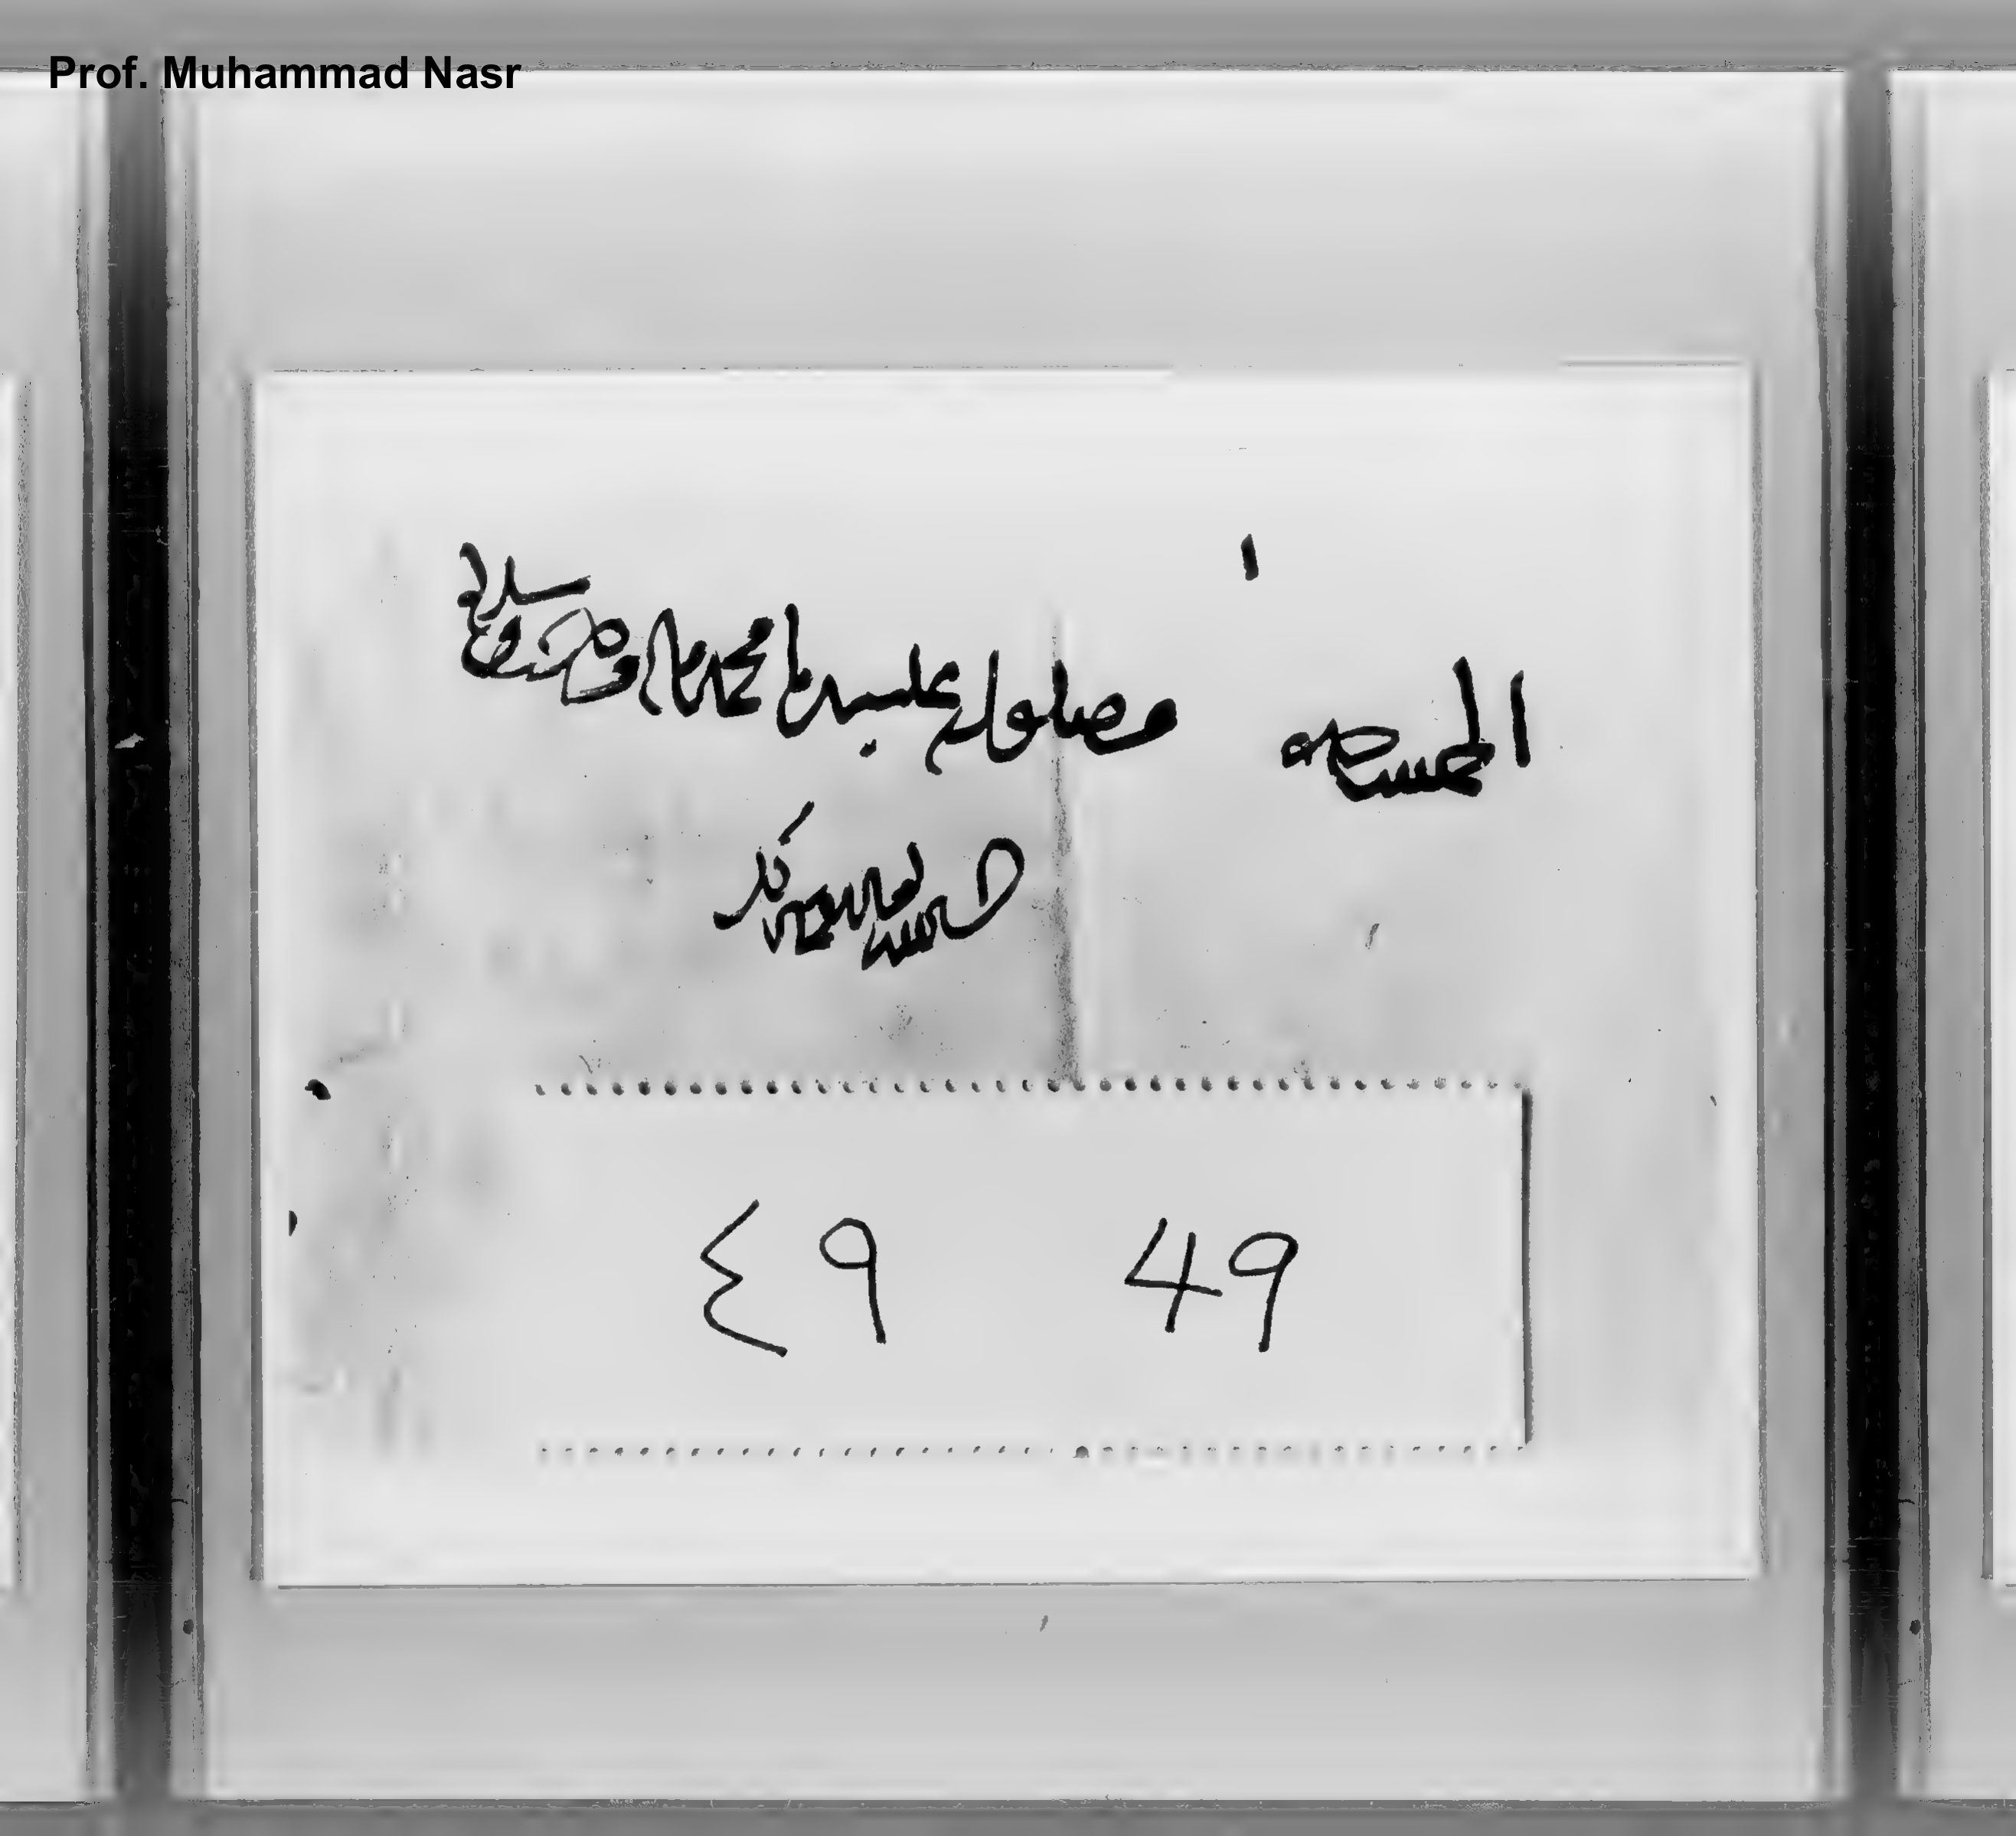 Prof. Muhammad Nasr
الحمد لله وصلواته على سيدنا محمد وآله وصحبه وسلامه
حسبنا الله ونعم الوكيل
٤٩ 49